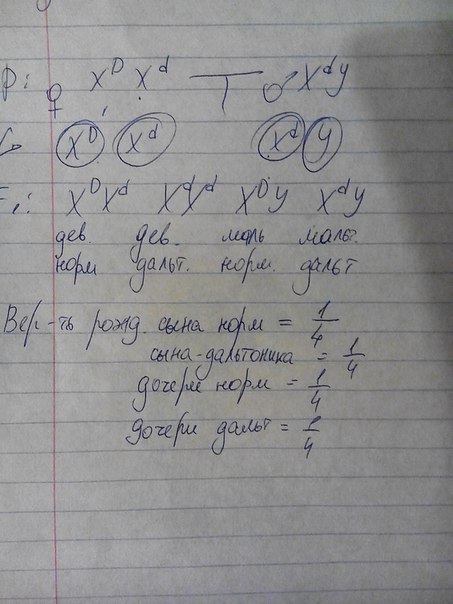 P: ♀ X^D X^d ♂ X^d y
X^D X^d X^d y
F₁: X^D X^d X^d X^d X^D y X^d y
дев. дев. маль мальт.
норм дальт. норм. дальт
Вер-ть рожд. сына норм = 1/4
сына-дальтоника = 1/4
дочери норм = 1/4
дочери дальт = 1/4